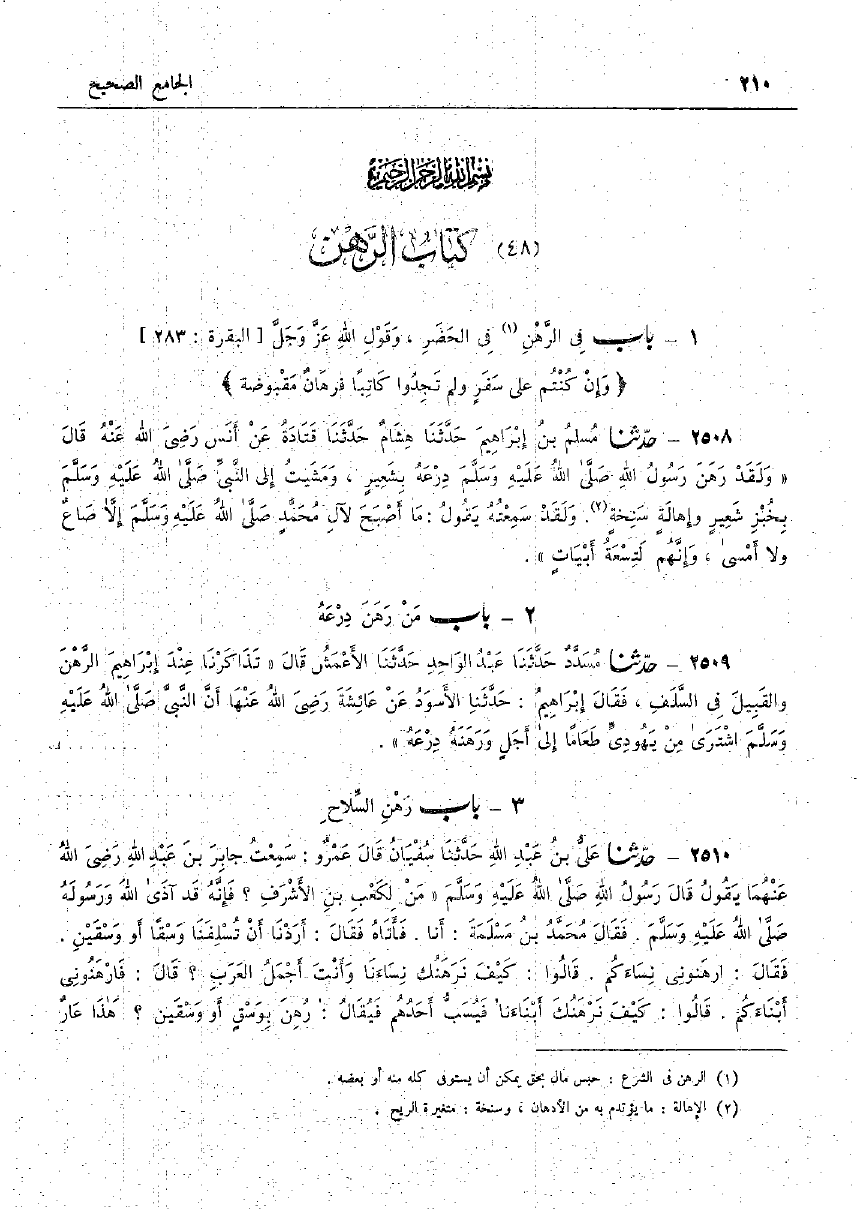 ٢١٠ الجامع الصحيح
بسم الله الرحمن الرحيم
(٤٨) كتاب الرَّهن
١ – باب فِى الرَّهْنِ (١) فِى الحَضَرِ ، وَقَوْلِ اللهِ عَزَّ وَجَلَّ [ البقرة : ٢٨٣ ]
﴿ وَإِنْ كُنْتُم على سَفَرٍ ولم تَجِدُوا كَاتِبًا فرهَانٌ مَقْبُوضة ﴾
٢٥٠٨ – حدّثنا مُسلمُ بنُ إِبْرَاهِيمَ حَدَّثَنَا هِشَامٌ حَدَّثَنَا قَتَادَةُ عَنْ أَنَس رَضِىَ الله عَنْهُ قَالَ
« وَلَقَدْ رَهَنَ رَسُولُ اللهِ صَلَّى اللهُ عَلَيْهِ وَسَلَّمَ دِرْعَهُ بِشَعِيرٍ ، وَمَشَيتُ إلى النَّبِىِّ صَلَّى اللهُ عَلَيْهِ وَسَلَّمَ
بِخُبْزِ شَعِيرٍ وإهالَةٍ سَنِخةٍ(٢). وَلَقَدْ سَمِعْتُهُ يَقُولُ : مَا أَصْبَحَ لآلِ مُحَمَّدٍ صَلَّى اللهُ عَلَيْهِ وَسَلَّمَ إلَّا صَاعٌ
ولا أَمْسىٰ ، وَإِنَّهُم لَتِسْعَةُ أَبْيَاتٍ » .
٢ – باب مَنْ رَهَنَ دِرْعَهُ
٢٥٠٩ – حدّثنا مُسَدَّدٌ حَدَّثَنَا عَبْدُ الوَاحِدِ حَدَّثَنَا الأَعْمَشُ قَالَ « تَذَاكَرْنَا عِنْدَ إِبْرَاهِيمَ الرَّهْنَ
والقَبِيلَ فِى السَّلَفِ ، فَقَالَ إِبْرَاهِيمُ : حَدَّثَنا الأَسوَدُ عَنْ عَائِشَةَ رَضِىَ اللهُ عَنْهَا أَنَّ النَّبِىَّ صَلَّى اللهُ عَلَيْهِ
وَسَلَّمَ اشْتَرَىٰ مِنْ يَهُودِىٍّ طَعَامًا إلَىٰ أَجَلٍ وَرَهَنَهُ دِرْعَهُ » .
٣ – باب رَهْنِ السِّلاحِ
٢٥١٠ – حدّثنا عَلىُّ بنُ عَبْدِ اللهِ حَدَّثَنَا سُفْيَانُ قَالَ عَمْرٌو : سَمِعْتُ جابِرَ بنَ عَبْدِ اللهِ رَضِىَ اللهُ
عَنْهُمَا يَقُولُ قَالَ رَسُولُ اللهِ صَلَّى اللهُ عَلَيْهِ وَسَلَّمَ « مَنْ لكَعْبِ بنِ الأَشْرَفِ ؟ فَإِنَّهُ قد آذَىٰ اللهَ وَرَسُولَهُ
صَلَّى اللهُ عَلَيْهِ وَسَلَّمَ . فَقَالَ مُحَمَّدُ بنُ مَسْلَمَةَ : أنا . فَأَتَاهُ فَقَالَ : أَرَدْنَا أَنْ تُسْلِفَنَا وَسْقًا أو وَسْقَيْنِ .
فَقَالَ : ارهَنونِى نِساءَكُم . قَالُوا : كَيْفَ نَرهَنُك نِساءَنَا وَأَنْتَ أَجْمَلُ العَرَبِ ؟ قَالَ : فَارْهَنُونِى
أَبْنَاءَكُم . قَالُوا : كَيْفَ نَرْهَنُكَ أَبْنَاءَنا فَيُسَبُّ أَحَدُهُم فَيُقَالُ : رُهِنَ بِوَسْقٍ أَو وَسْقَين ؟ هَٰذَا عَارٌ
(١) الرهن فى الشرع : حبس مال بحق يمكن أن يستوفى كله منه أو بعضه .
(٢) الإهالة : ما يؤتدم به من الأدهان ، وسنخة : متغيرة الريح .